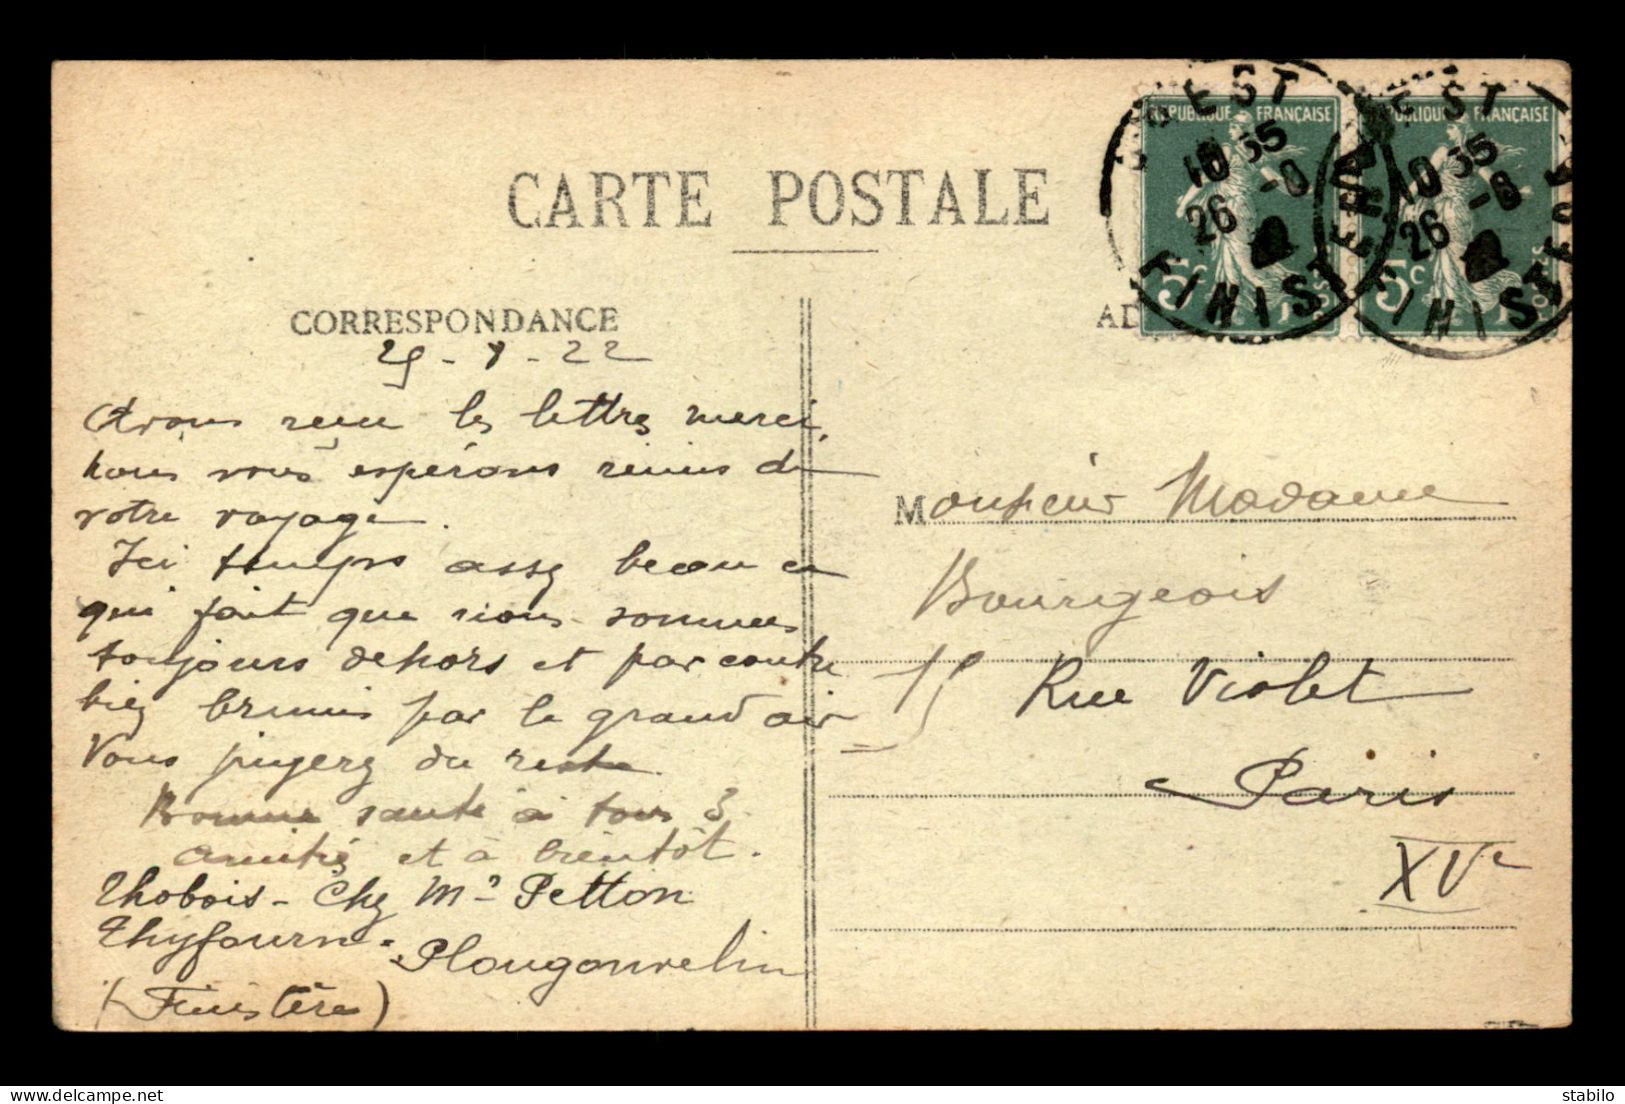 CARTE POSTALE
CORRESPONDANCE
AD
REPUBLIQUE FRANÇAISE
REPUBLIQUE FRANÇAISE
5c
5c
POSTES
BREST
10 35
26 -8
22
FINISTERE
BREST
10 35
26 -8
22
FINISTERE
25-8-22
Avons reçu les lettres merci,
nous vous espérons remis de
votre voyage.
Ici temps assez beau ce
qui fait que nous sommes
toujours dehors et par contre
bien brunis par le grand air
Vous jugerez du reste.
Bonne santé à tous 3
amitiés et à bientôt.
Thobois - Chez Mr Petton
Plougonvelin
(Finistère)
Monsieur Madame
Bourgeois
15 Rue Violet
Paris
XVe
© stabilo
delcampe.net